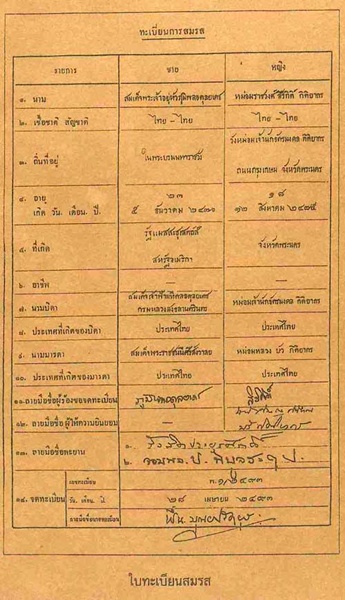 ทะเบียนการสมรส
รายการ ชาย หญิง
๑. นาม สมเด็จพระเจ้าอยู่หัวภูมิพลอดุลยเดช หม่อมราชวงศ์ สิริกิติ์ กิติยากร
๒. เชื้อชาติ สัญชาติ ไทย - ไทย ไทย - ไทย
๓. ถิ่นที่อยู่ ในพระบรมมหาราชวัง วังหม่อมเจ้านักขัตรมงคล กิติยากร
ถนนกรุงเกษม จังหวัดพระนคร
๔. อายุ ๒๓ ๑๘
เกิด วัน. เดือน. ปี. ๕ ธันวาคม ๒๔๗๐ ๑๒ สิงหาคม ๒๔๗๕
๕. ที่เกิด รัฐแมสสาชูเสตต์ส์ จังหวัดพระนคร
สหรัฐอเมริกา
๖. อาชีพ — —
๗. นามบิดา สมเด็จเจ้าฟ้ามหิดลอดุลยเดช หม่อมเจ้านักขัตรมงคล กิติยากร
กรมหลวงสงขลานครินทร์
๘. ประเทศที่เกิดของบิดา ประเทศไทย ประเทศไทย
๙. นามมารดา สมเด็จพระราชชนนีศรีสังวาลย์ หม่อมหลวง บัว กิติยากร
๑๐. ประเทศที่เกิดของมารดา ประเทศไทย ประเทศไทย
๑๑. ลายมือชื่อผู้ร้องขอจดทะเบียน ภูมิพลอดุลยเดช สิริกิติ์
๑๒. ลายมือชื่อผู้ให้ความยินยอม —
๑๓. ลายมือชื่อพยาน ๑. รังสิตประยูรศักดิ์
๒. จอมพล ป. พิบูลสงคราม
เลขทะเบียน ๓.๑/๒๔๙๓
๑๔. จดทะเบียน วัน. เดือน. ปี ๒๘ เมษายน ๒๔๙๓
ลายมือชื่อนายทะเบียน ฟื้น บุณยปรัตยุธ
ใบทะเบียนสมรส